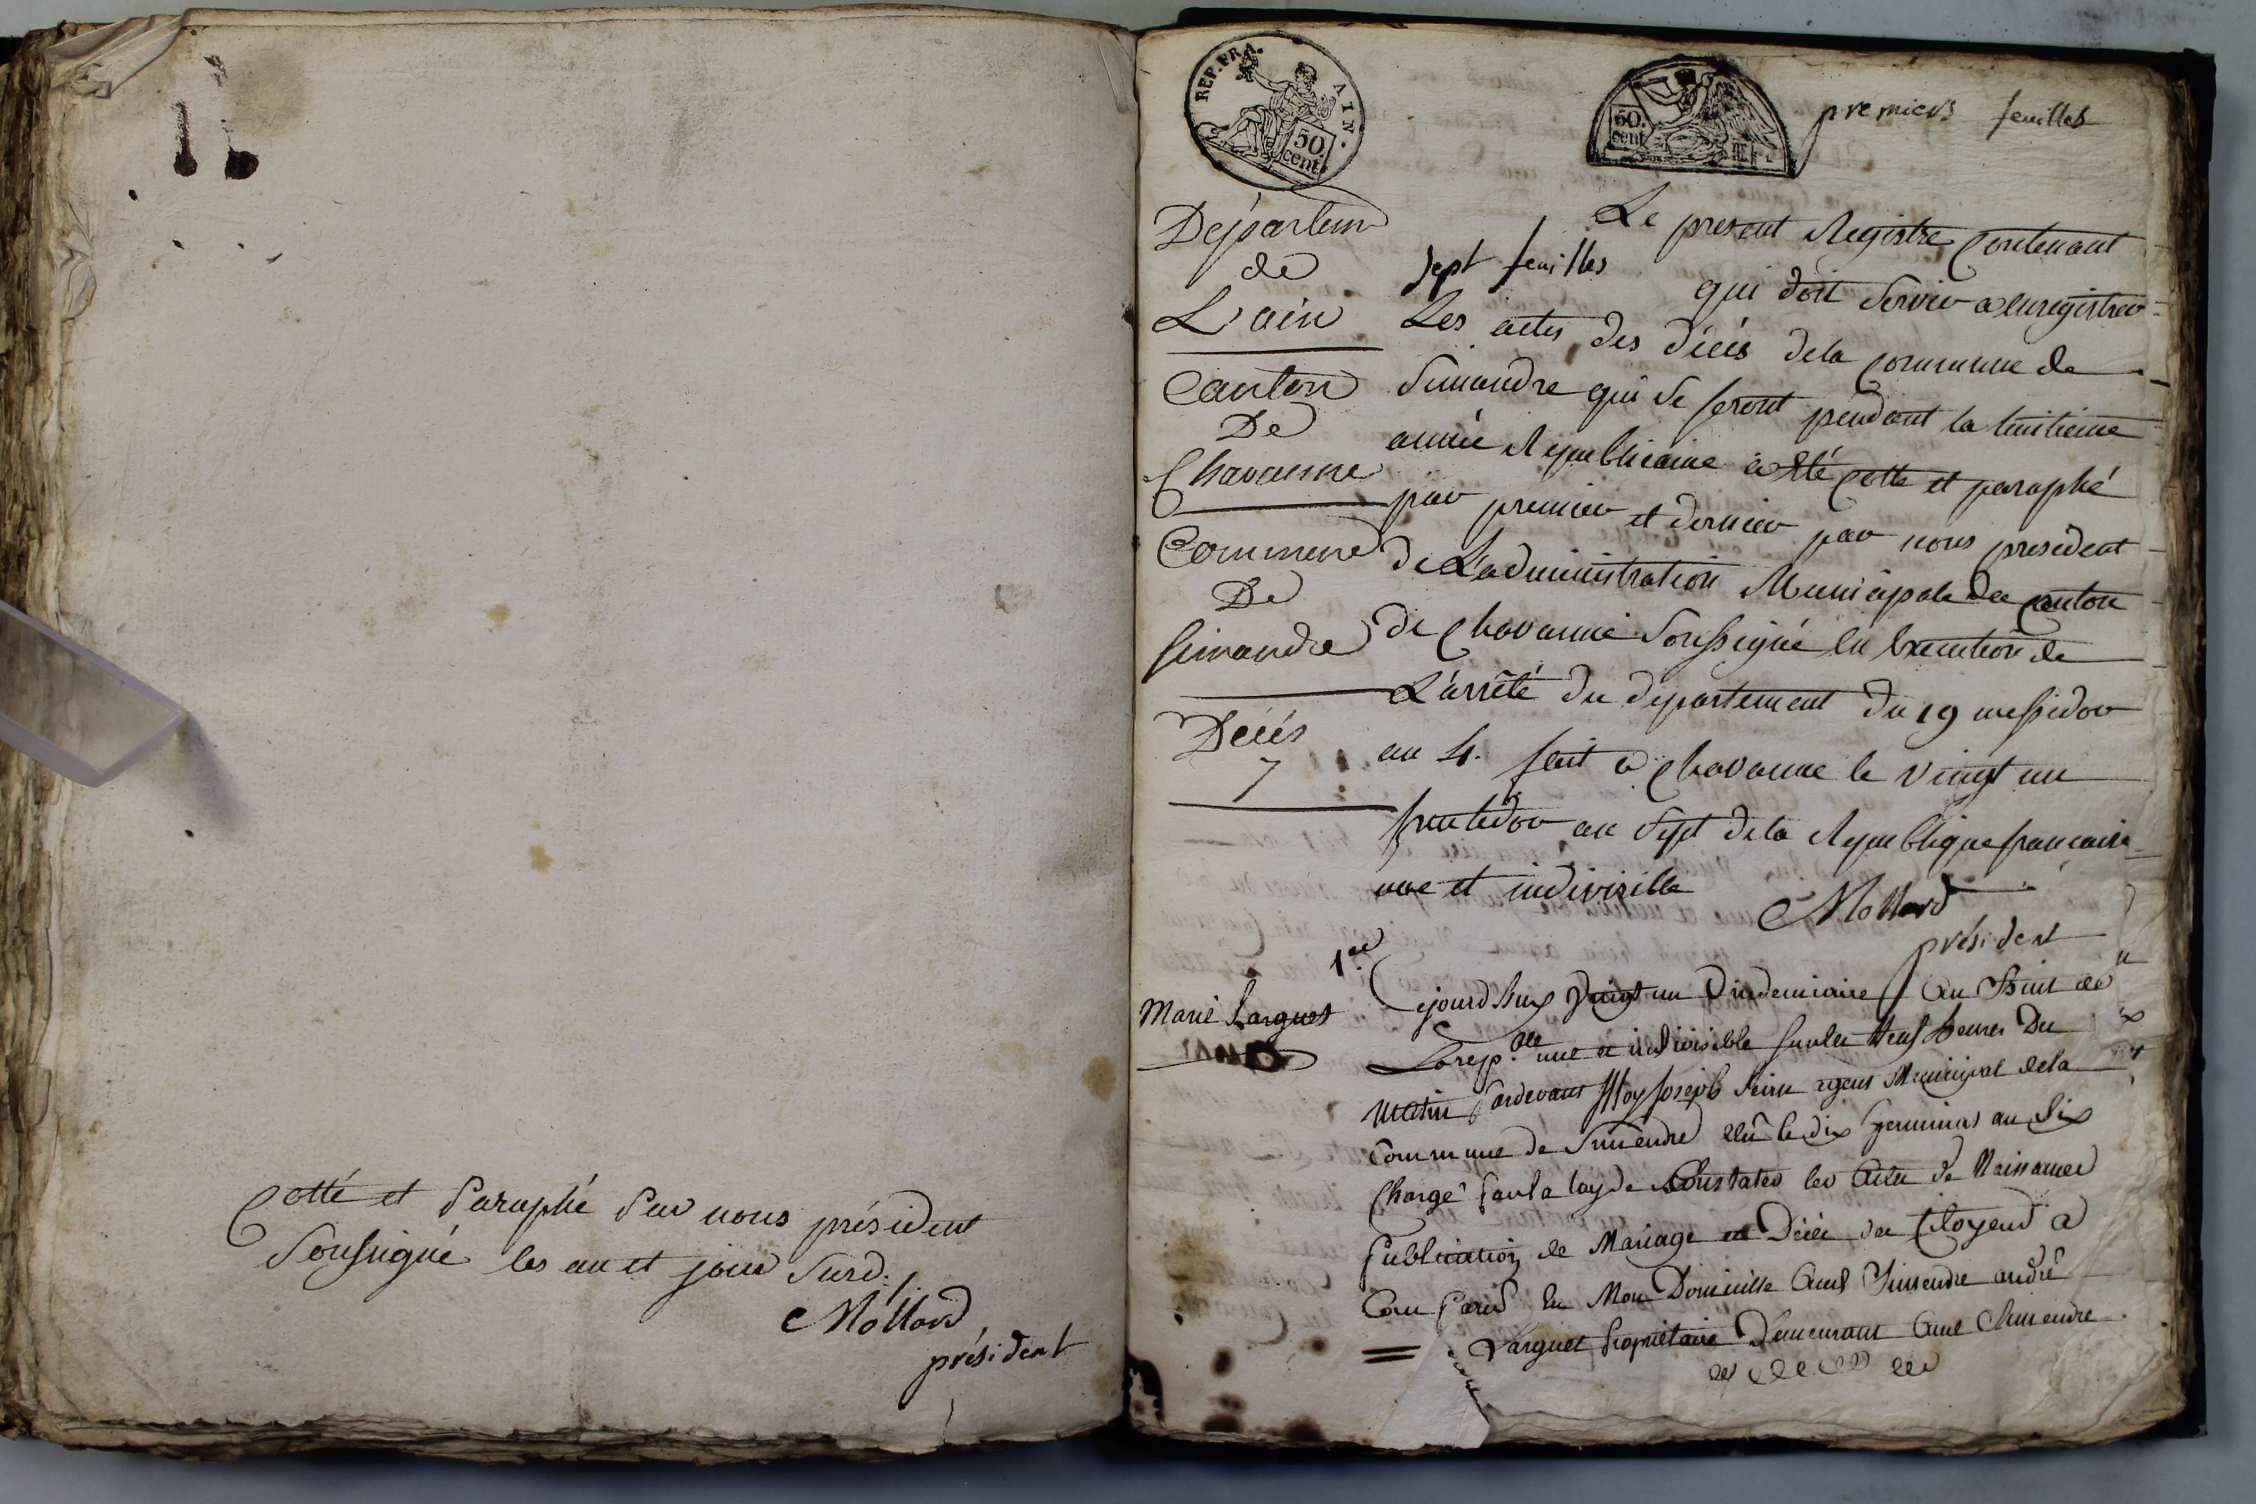 Cotté et Paraphé Par nous président
Soussigné les an et jour Susd.
Mollard
président
REP. FRA. AIN.
50. cent.
50. cent
premiers feuillet
Départem
de
L'ain
Canton
De
Chavanne
Commune
De
Simandre
Décés
7
Le present Registre Contenant
sept feuilles qui doit Servir a enregistrer
Les actes des décés dela Commune de
Simandre qui se feront pendant la huitieme
année Republicaine a été Cotté et paraphé
par premier et dernier par nous president
de L'administration Municipale du Canton
de Chavanne Soussigné en Execution de
L'arrêté du departement du 19 messidor
an 4. fait a Chavanne le vingt un
fructidor an Sept dela Republique francaise
une et indivisible
Mollard
président
1.er
Marie Larguet
Cejourdhuy vingt un Vindemiaire an huit de
Larep.que une et indivisible sur les neuf heures Du
Matin Pardevant Moy Joseph agent Municipal dela
Commune de Simendre élû le dix germinal an Six
Chargé Par la loy de Constater les Actes de Naissance
Publication de Mariage et Décés des Citoyens a
Comparu en Mon Domicille Aud Simendre andré
Larguet Propriétaire Demeurant Aud Simendre